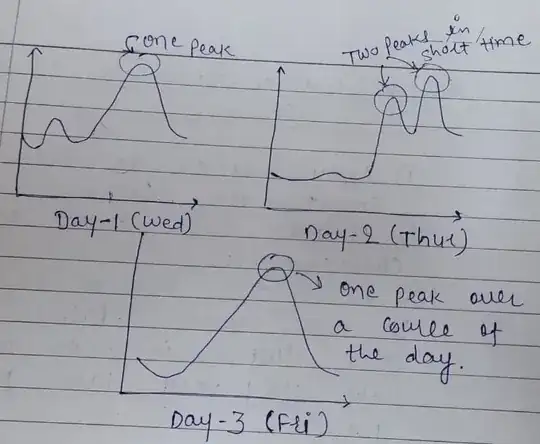 one peak
Two peaks in
short time
Day-1 (Wed)
Day-2 (Thur)
one peak over
a course of
the day.
Day-3 (Fri)